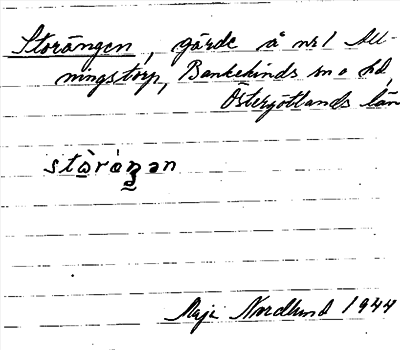 Storängen, gärde å nr 1 All-
ningstorp, Bankekinds sn o hd,
Östergötlands län
stòráŋən
Maji Nordlund 1944